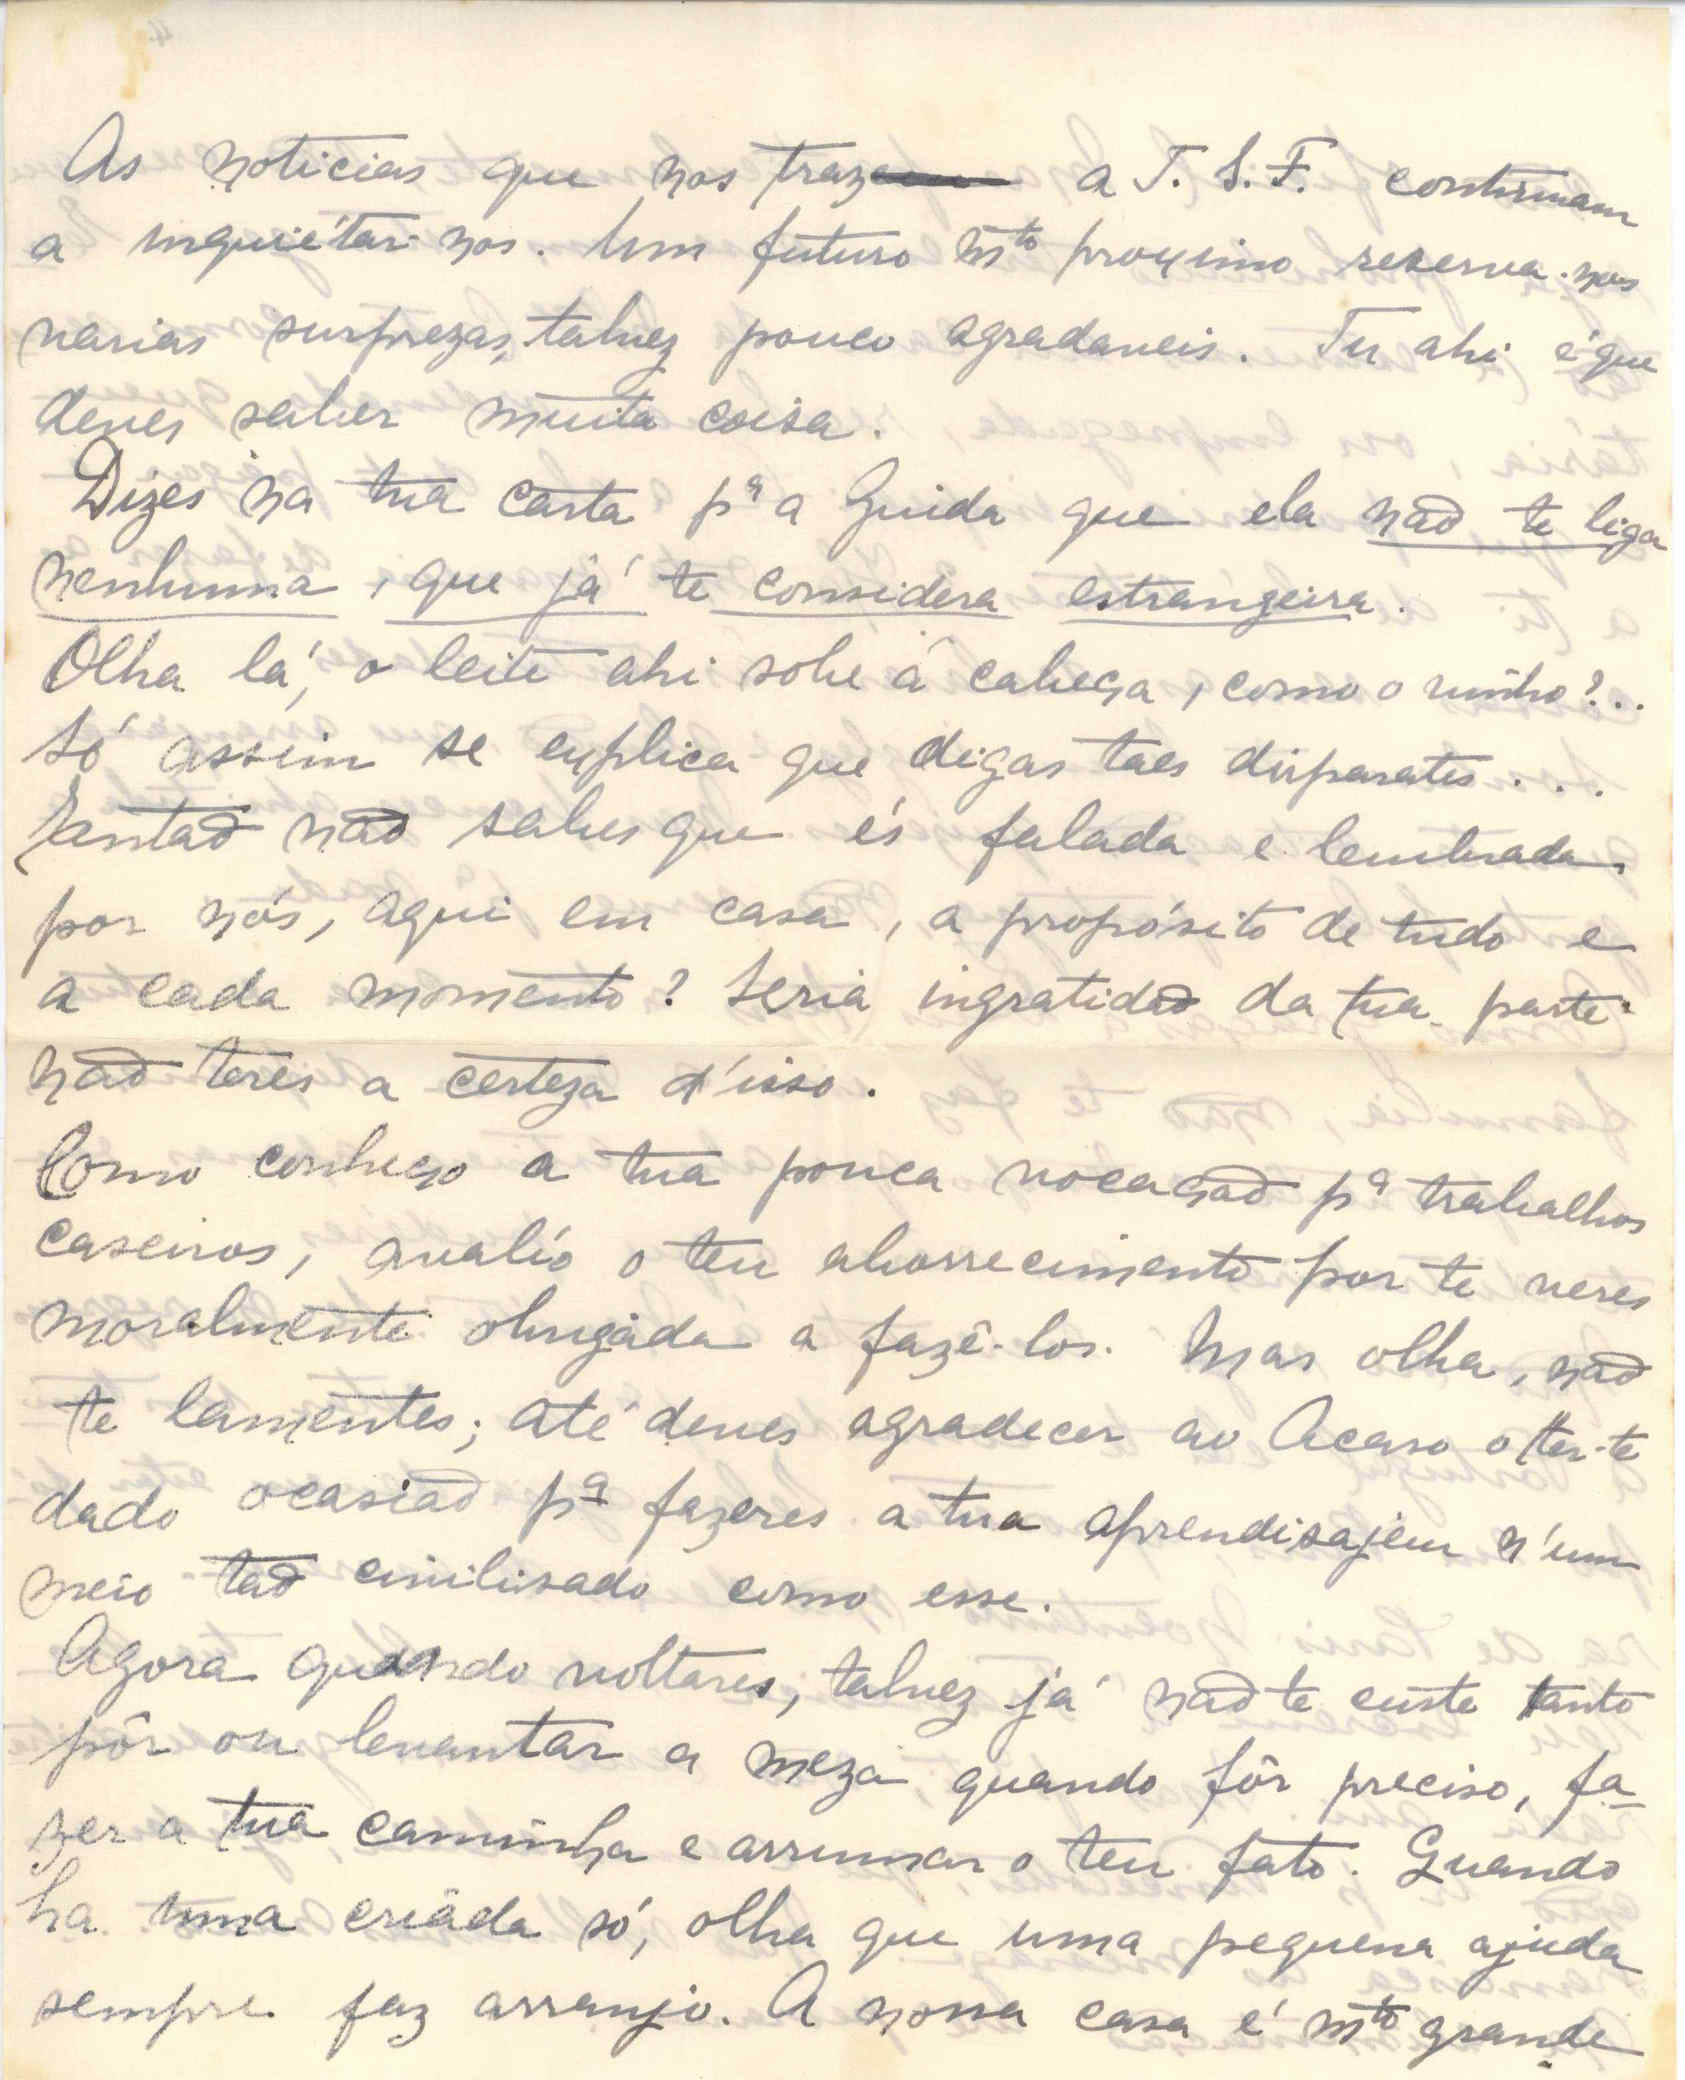 As noticias que nos traz a T. S. F. continuam
a inquiétar-nos. Um futuro mto proximo reserva-nos
varias surprezas, talvez pouco agradaveis. Tu ahi é que
deves saber muita coisa.
Dizes na tua carta pª a Guida que ela não te liga
nenhuma, que já te considera estrangeira.
Olha lá, o leite ahi sobe á cabeça, como o vinho?..
Só assim se explica que digas taes disparates...
Então não sabes que és falada e lembrada,
por nós, aqui em casa, a propósito de tudo e
a cada momento? Seria ingratidão da tua parte
não teres a certeza d'isso.
Como conheço a tua pouca vocação pª trabalhos
caseiros, avalio o teu aborrecimento por te veres
moralmente obrigáda a fazê-los. Mas olha, não
te lamentes; até deves agradecer ao Acaso o ter-te
dado ocasião pª fazeres a tua aprendisajem n'um
meio tão civilisado como esse.
Agora quando voltares, talvez já não te custe tanto
pôr ou levantar a meza quando fôr preciso, fa-
zer a tua caminha e arrumar o teu fato. Quando
ha uma criáda só, olha que uma pequena ajuda
sempre faz arranjo. A nossa casa é mto grande